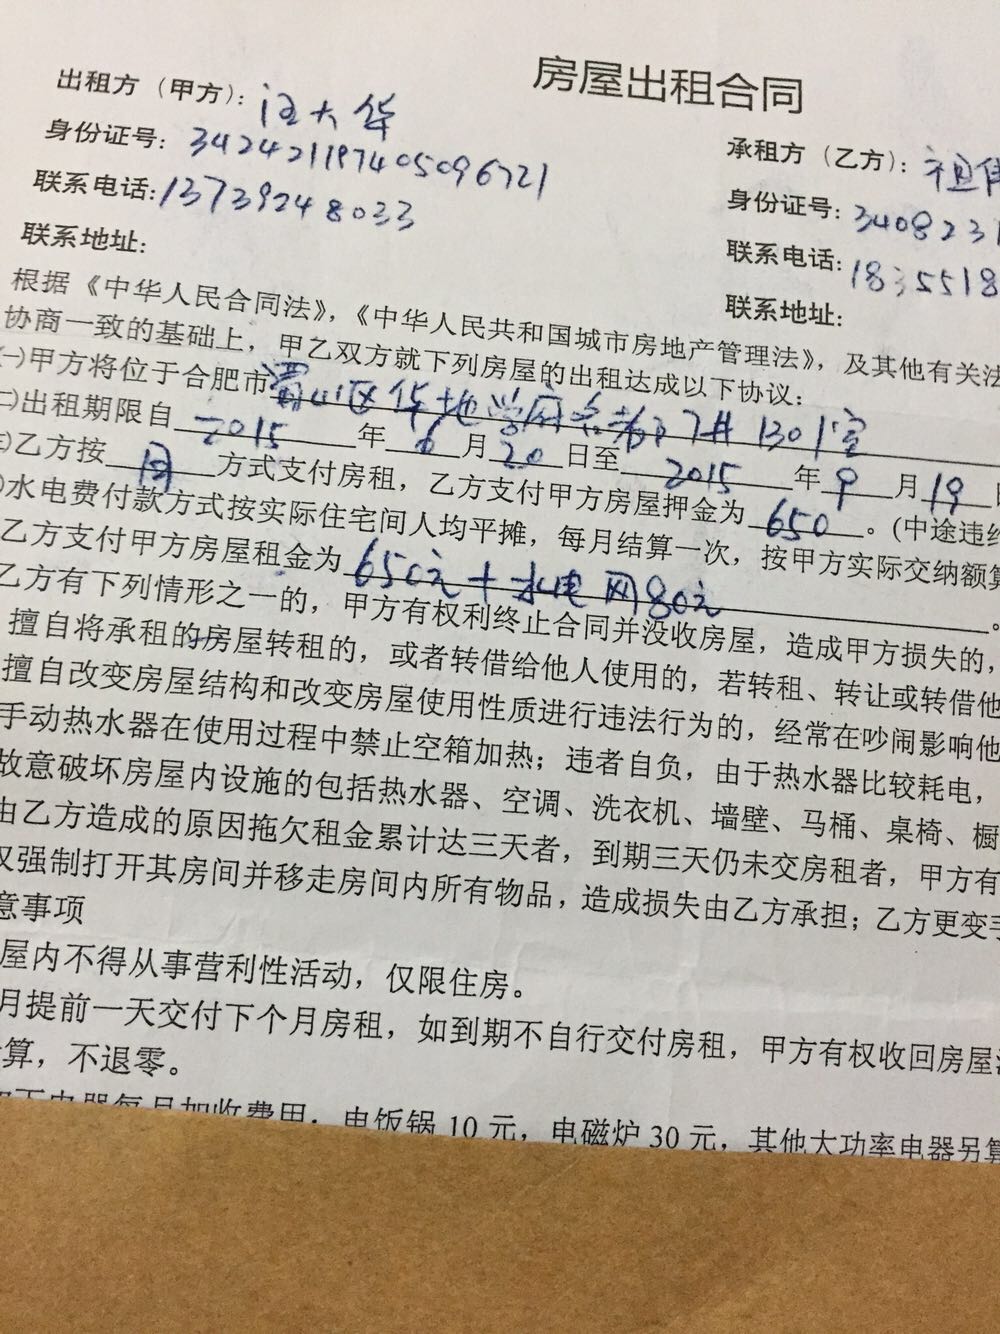 房屋出租合同
出租方（甲方）：汪大华
身份证号：342421197405096721
联系电话：13739248033
联系地址：
承租方（乙方）：祖
身份证号：3408231
联系电话：1835518
联系地址：
根据《中华人民合同法》，《中华人民共和国城市房地产管理法》，及其他有关法
协商一致的基础上，甲乙双方就下列房屋的出租达成以下协议：
(一)甲方将位于合肥市 区华地学府名都 7# 1301室
二)出租期限自 2015 年 6 月 20 日至 2015 年 9 月 19
)乙方按 月 方式支付房租，乙方支付甲方房屋押金为 650 。(中途违约
)水电费付款方式按实际住宅间人均平摊，每月结算一次，按甲方实际交纳额算
乙方支付甲方房屋租金为 650元+水电网80元 。
乙方有下列情形之一的，甲方有权利终止合同并没收房屋，造成甲方损失的，
擅自将承租的房屋转租的，或者转借给他人使用的，若转租、转让或转借他
擅自改变房屋结构和改变房屋使用性质进行违法行为的，经常在吵闹影响他
手动热水器在使用过程中禁止空箱加热；违者自负，由于热水器比较耗电，
故意破坏房屋内设施的包括热水器、空调、洗衣机、墙壁、马桶、桌椅、橱
由乙方造成的原因拖欠租金累计达三天者，到期三天仍未交房租者，甲方有
权强制打开其房间并移走房间内所有物品，造成损失由乙方承担；乙方更变手
意事项
屋内不得从事营利性活动，仅限住房。
月提前一天交付下个月房租，如到期不自行交付房租，甲方有权收回房屋
算，不退零。
电器每月加收费用：电饭锅 10 元，电磁炉 30 元，其他大功率电器另算